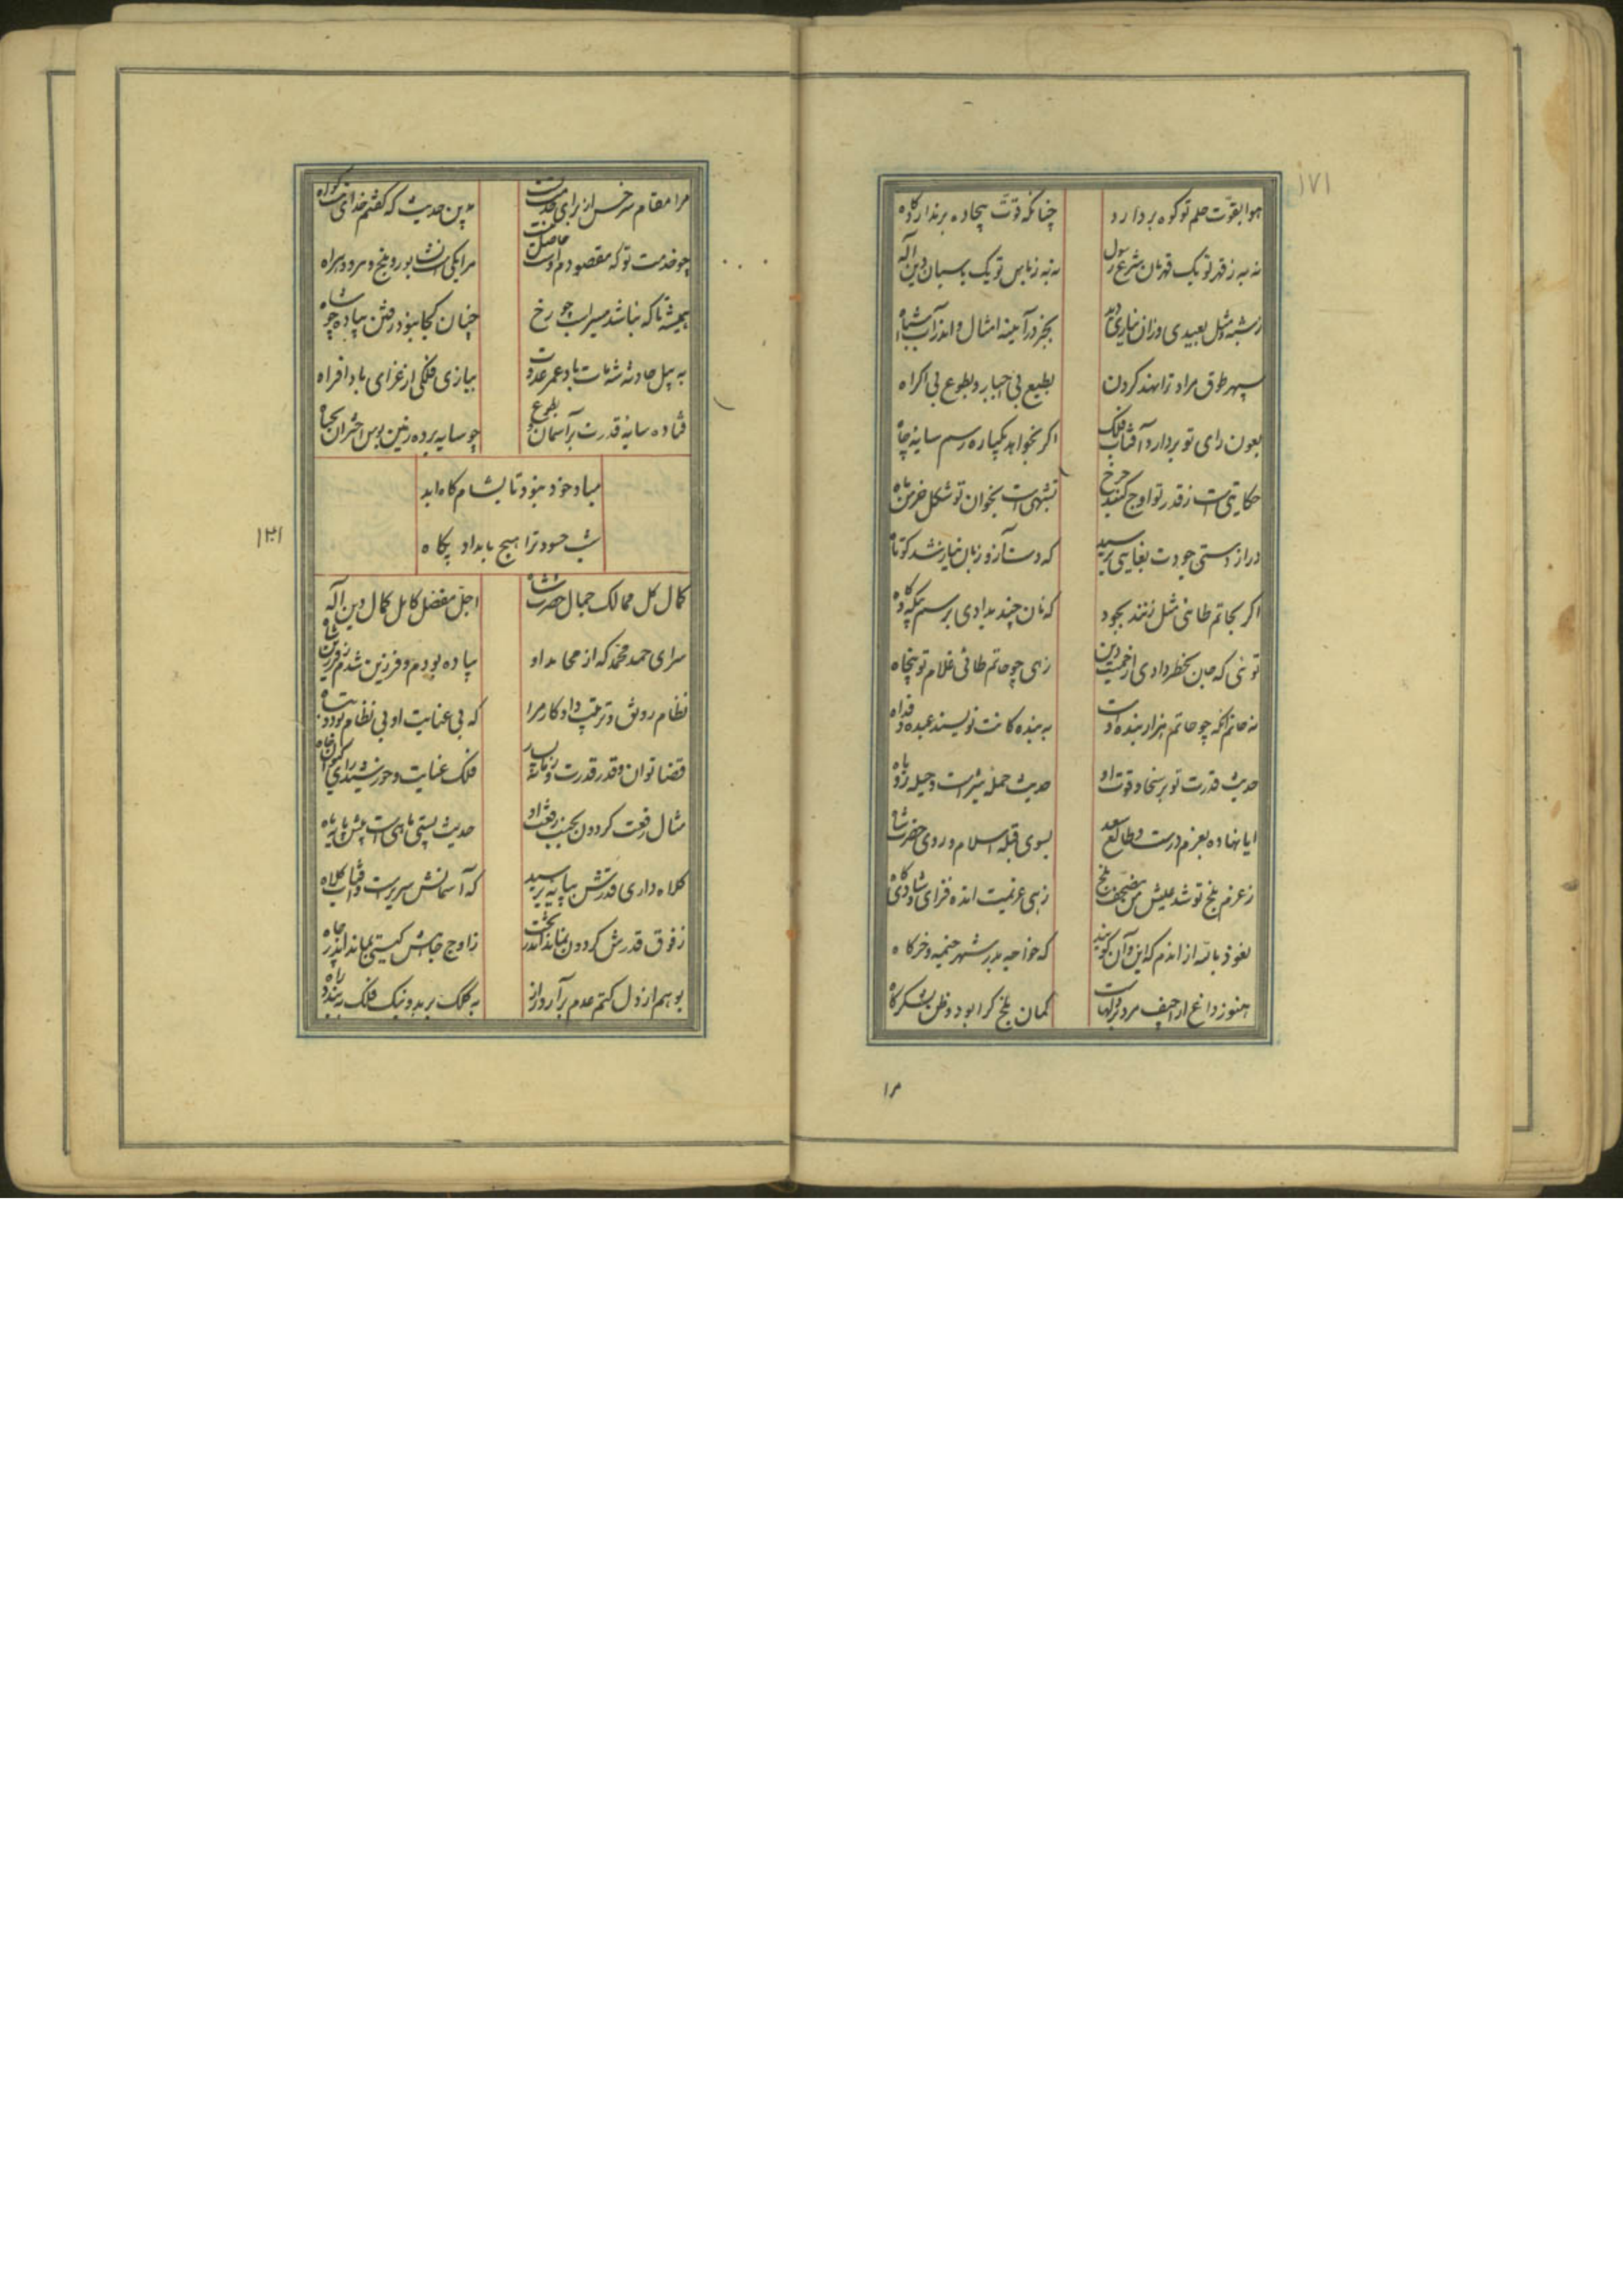 ۱۷۱
هوا بقوّت حلم تو کوه بردارد
چنانکه قوّت بیجاده برندارد کاه
نه به ز قهر تو یک قهرمان بشرع رسول
نه به ز باس تو یک پاسبان دین اله
ز شبه و مثل بعیدی و زان نیاری دید
بجز در آینه امثال و اندر آب اشباه
سپهر طوق مراد ترا نهد کردن
بطبع بی اجبار و بطوع بی اکراه
بعون رای تو بردارد آفتاب فلک
اکر بخواهد یکباره رسم سایه چاه
حکایتی است ز قدر تو اوج کنبد چرخ
تشبهی است بخوان تو شکل خرمن ماه
دراز دستی جودت بغایتی برسید
که دست آز و زبان نیاز شد کوتاه
اکر بحاتم طائی مثل زنند بجود
که نان چند بدادی برسم بیکه و کاه
توئی که
زهی چو حاتم طائی غلام تو پنجاه
نه حاتم آنکه چو حاتم هزار بنده اوست
به بنده کانت نویسند عبده و فداه
حدیث قدرت تو بر سخا و قوت او
حدیث حمله شیر است و حیله روباه
ایا نهاده بعزم درست و طالع سعد
بسوی قبله اسلام و روی حضرت شاه
ز عزم بلخ تو شد عیش من مصحف بلخ
زهی عزیمت انده فزای شادی کاه
نعوذ بالله از اندم که این و آن کویند
که خواجه بر در شهر خیمه و خرکاه
هنوز داغ
کمان بلخ کرا بود و ظن لشکرکاه
مرا
مرا مقام سرخس از برای خدمت تست
بدین حدیث که کفتم خدای هست کواه
چو خدمت تو که مقصود من اوست حاصل نیست
مرا یکی است نشابور و بلخ و مرو و هراه
همیشه تا که نباشد مسیر اسب چو رخ
چنان کجا نبود رفتن پیاده چو شاه
به پیل حادثه شه مات باد عمر عدوت
ببازی فلکی از غزای باد افراه
فتاده سایه قدرت بر آسمان بطوع
چو سایه برده زمین بوس اختران بجباه
مباد خود نبود تا بشام کاه ابد
شب حسود ترا هیچ بامداد پکاه
۱۳۱
کمال کل ممالک جمال حضرت شاه
اجل مفضل کامل کمال دین اله
سرای حمد محمد که از محامد او
پیاده بودم و فرزین شدم
نظام رونق و ترتیب داد کار مرا
که بی عنایت او بی نظام بود و تباه
قضا توان و قدر قدرت و
فلک عنایت و خورشید رای و کیوان جاه
مثال رفعت کردون بجنب رفعت او
حدیث پستی ماهی است پیش پایه ماه
کلاه داری قدرش بپایه برسید
که آسمانش سریر است و آفتاب کلاه
ز فوق قدرش کردون بماند اندر تحت
ز اوج جاهش کیتی بماند اندر چاه
بوهم از دل کتم عدم برآرد راز
به کلک بر بد و نیک فلک ببندد راه